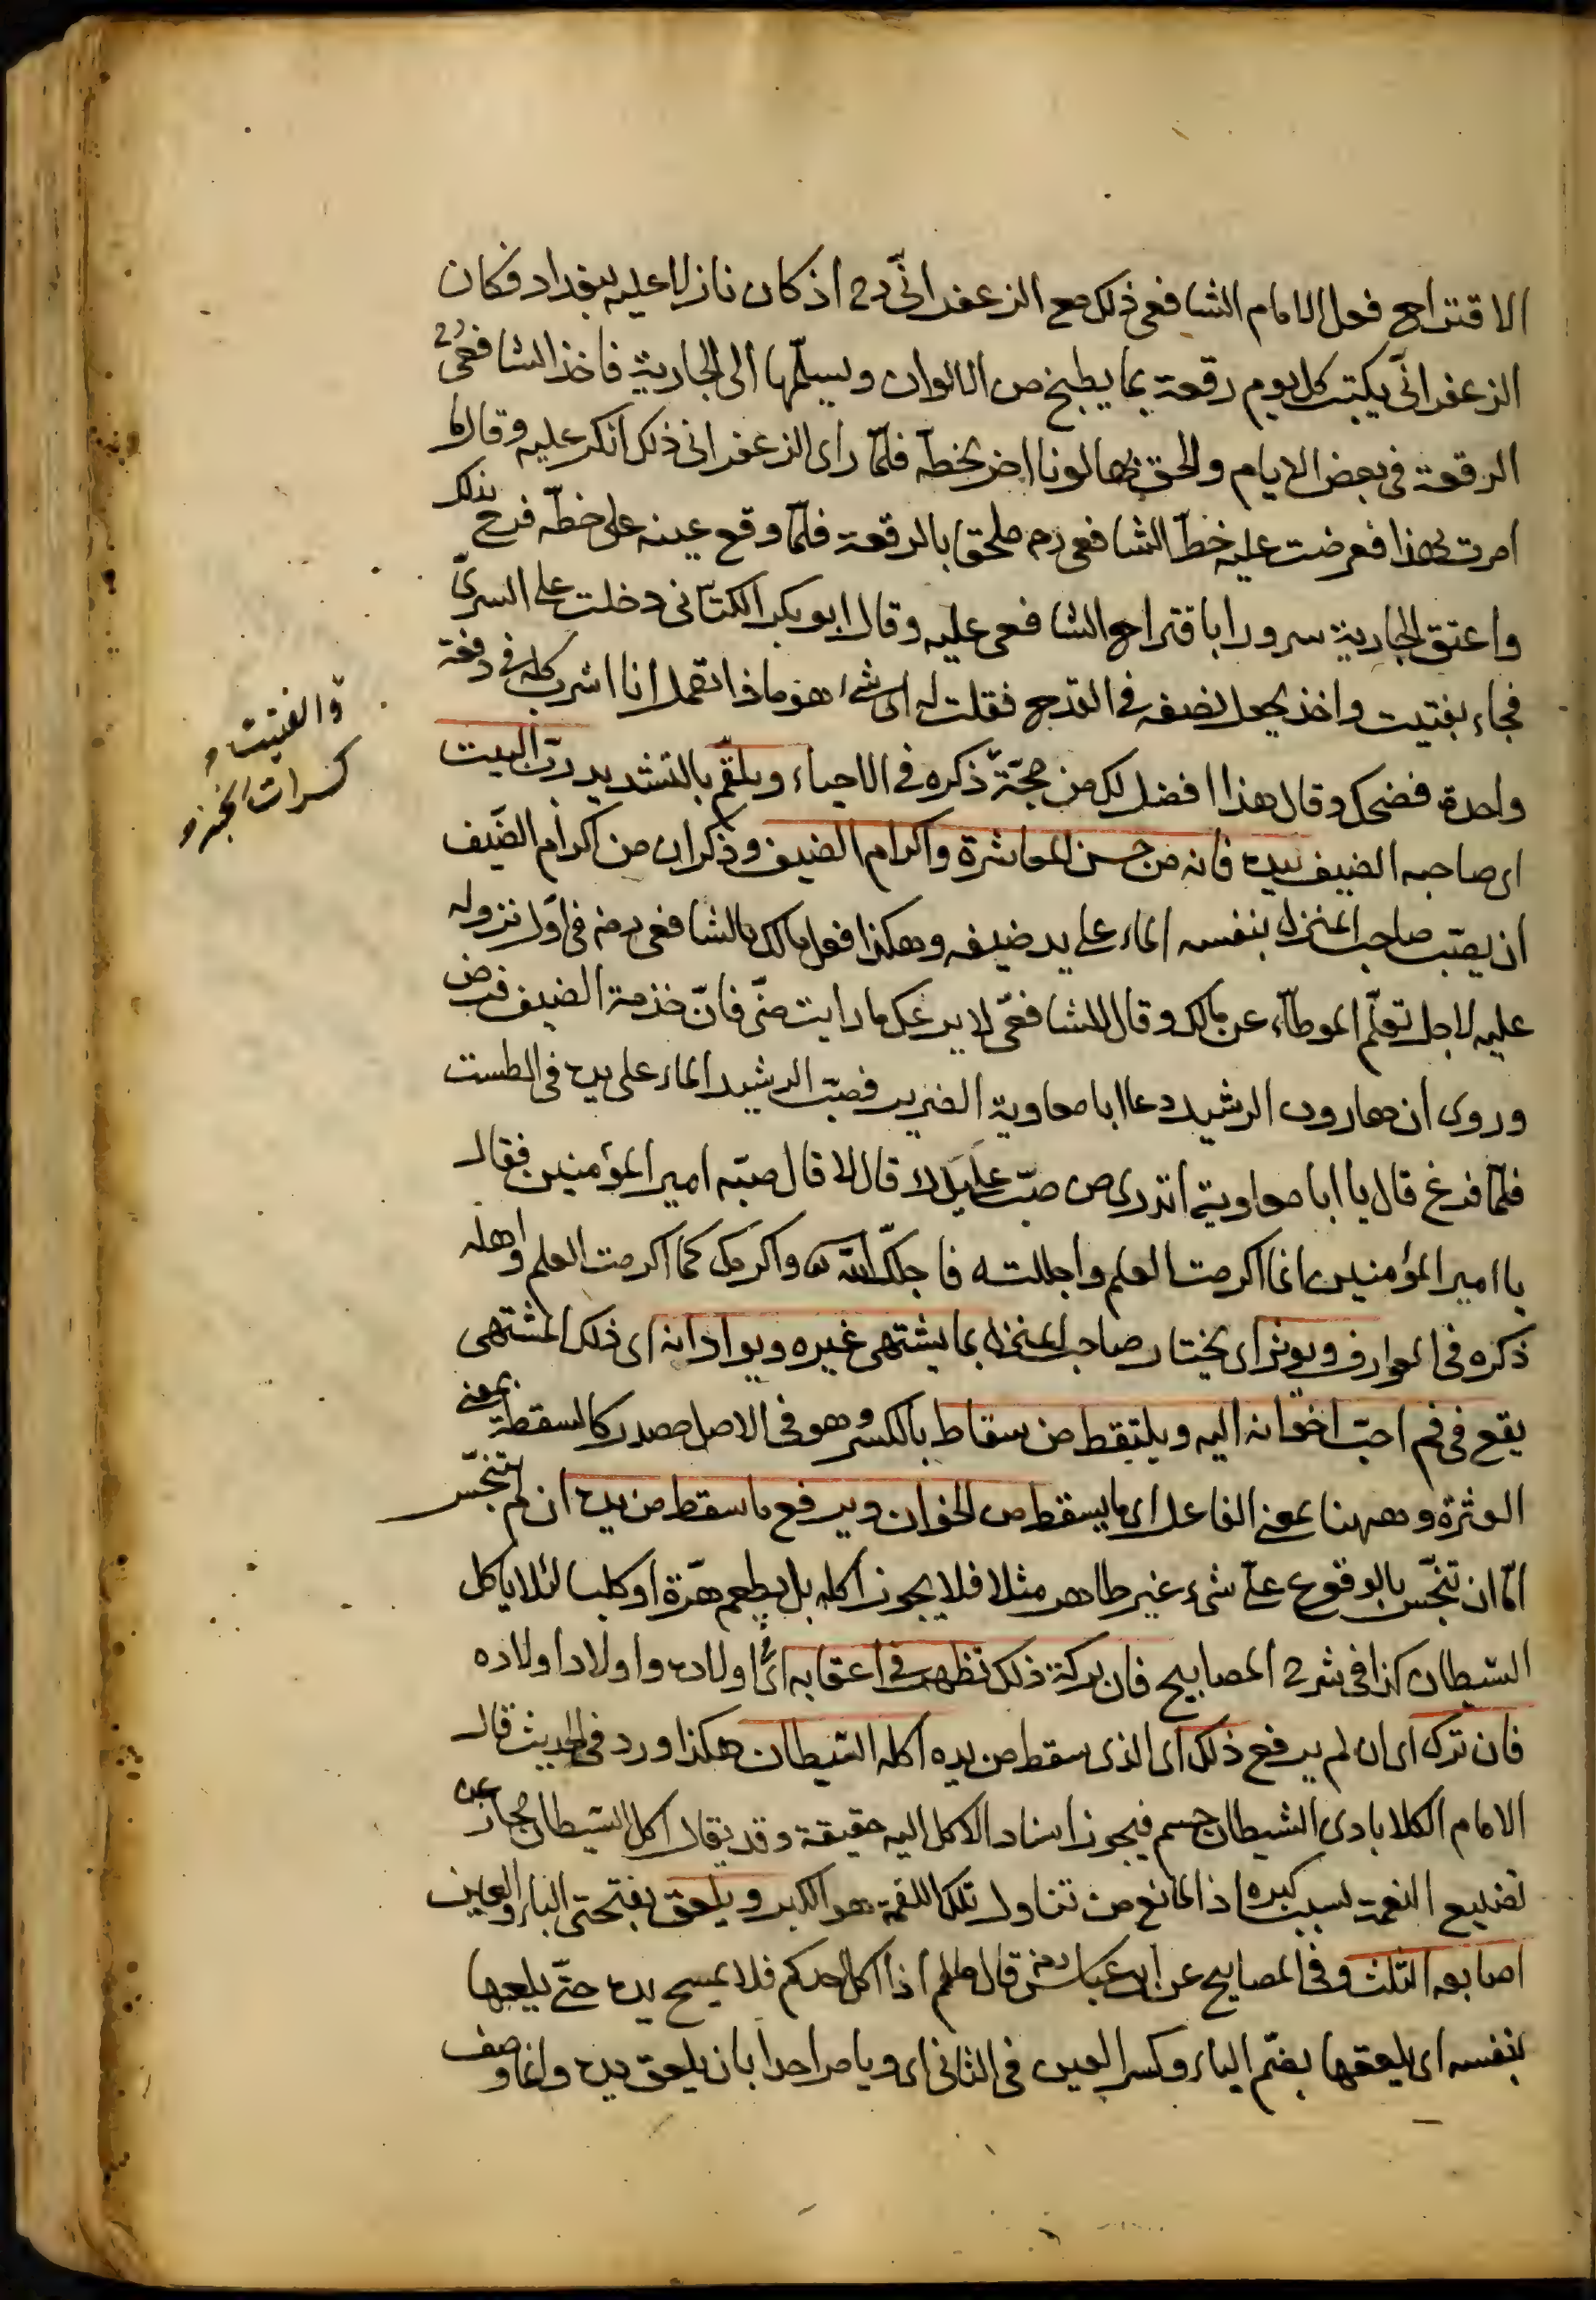 الاقتراح فعل الامام الشافعى ذلك مع الزعفرانىّ رح اذ كان نازلا عليه ببغداد فكان
الزعفرانىّ يكتب كل يوم رقعة بما يطبخ من الالوان ويسلّمها الى الجارية فاخذ الشافعىّ رح
الرقعة فى بعض الايام والحق بها لونا اخر بخطّه فلمّا راى الزعفرانى ذلك انكر عليه وقال ما
امرت بهذا فعرضت عليه خطّ الشافعى رح ملحقا بالرقعة فلمّا وقع عينه على خطّه فرح بذلك
واعتق الجارية سرورا باقتراح الشافعى عليه وقال ابو بكر الكتّانى دخلت على السرىّ
فجاء بفتيت واخذ يجعل نصفه فى القدح فقلت له اى شئ هذو ماذا تعمل انا اشرب كله فى دفعة
واحدة فضحك وقال هذا افضل لك من حجّة ذكره فى الاحياء ويلقّم بالتشديد ربّ البيت
اى صاحبه الضيف بيده فانه من حسن المعاشرة واكرام الضيف وذكر ان من اكرام الضيف
ان يصبّ صاحب المنزل بنفسه الماء على يد ضيفه وهكذا فعل مالك بالشافعى رضه فى اوّل نزوله
عليه لاجل تعلّم الموطّاء عن مالك وقال للشافعىّ لا يرعك ما رايت منّى فانّ خدمة الضيف فرض
وروى ان هارون الرشيد دعا ابا معاوية الضرير فصبّ الرشيد الماء على يده فى الطست
فلمّا فرغ قال يا ابا معاوية اتدرى من صبّ على يدك قال لا قال صبّه امير المؤمنين فقال
يا امير المؤمنين انما اكرمت العلم واجللته فاجلّك الله واكرمك كما اكرمت العلم واهله
ذكره فى العوارف ويوثر اى يختار صاحب المنزل بما يشتهى غيره ويرادانه اى ذلك المشتهى
يقع فى فم احبّ اخوانه اليه ويلتقط من سقاط بالكسر وهو فى الاصل مصدر كالسقطة بمعنى
العثرة وههنا بمعنى الفاعل اى ما يسقط من الخوان ويرفع ما سقط من يده ان لم تنجّس
امّا ان تنجّس بالوقوع على شىء غير طاهر مثلا فلا يجوز اكله بل يطعم هرّة او كلبا لئلا ياكل
الشيطان كذا فى شرح المصابيح فان بركة ذلك تظهر فى اعقابه اى اولاده واولاد اولاده
فان ترك اى ان لم يرفع ذلك اى الذى سقط من يده اكله الشيطان هكذا ورد فى الحديث قال
الامام الكلابادى الشيطان جسم فيجوز اسناد الاكل اليه حقيقة وقد يقال اكل الشيطان مجاز عن
تضييع النعمة بسبب كبره اذ المانع من تناول تلك اللقمة هو الكبر ويلعق بفتحتى الياء والعين
اصابعه الثلث وفى المصابيح عن ابن عباس رضه قال صلعم اذا اكل احدكم فلا يمسح يده حتّى يلعقها
بنفسه اى يلعقها بضمّ الياء وكسر العين فى الثانى اى ويامر احدا بان يلعق يده وانما وصف
والفتيت
كسرات الخبز